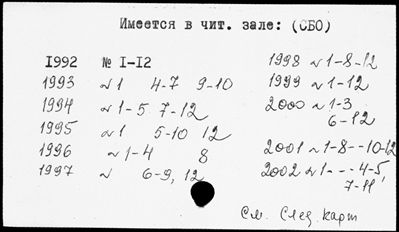 Имеется в чит. зале: (СБО)
1992 № 1-12
1993 № 1 4-7 9-10
1994 № 1-5 7-12
1995 № 1 5-10 12
1996 № 1-4 8
1997 № 6-9, 12
1998 № 1-8-12
1999 № 1-12
2000 № 1-3
6-12
2001 № 1-8--10-12
2002 № 1---4-5,
7-11,
См. След. карт